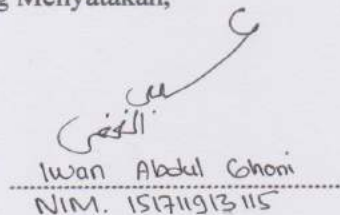 g Menyatakan,
Iwan Abdul Ghoni
NIM. 151711913115